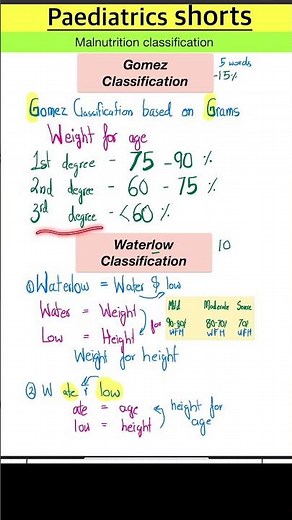 Paediatrics shorts
Malnutrition classification
Gomez
Classification
5 words
-15%
Gomez Classification based on Grams
Weight for age
1st degree - 75 - 90 %
2nd degree - 60 - 75 %
3rd degree - <60 %
Waterlow
Classification
10
① Waterlow = Water & low
Water = Weight
Low = Height
for
Mild Moderate Severe
90-80% 80-70% 70%
WFH WFH WFH
Weight for height
② W ate r low
ate = age
low = height
height for
age